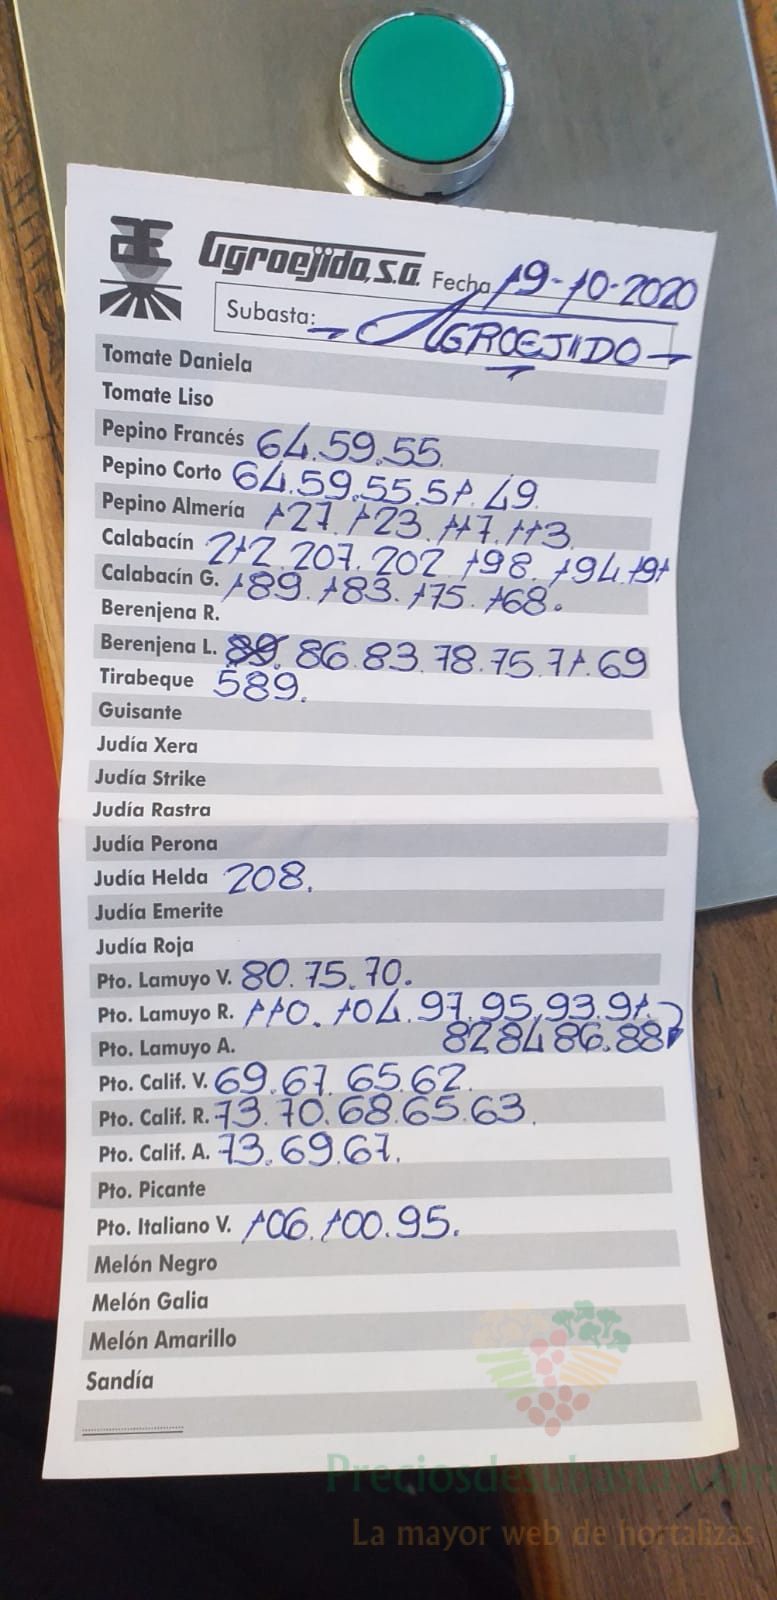 Agroejido, s.a. Fecha 19-10-2020
Subasta: AGROEJIDO
Tomate Daniela
Tomate Liso
Pepino Francés 64.59.55.
Pepino Corto 64.59.55.51.49.
Pepino Almería 127.123.117.113.
Calabacín 212.207.202.198.194.191
Calabacín G. 189.183.175.168.
Berenjena R.
Berenjena L. 89. 86.83.78.75.71.69
Tirabeque 589.
Guisante
Judía Xera
Judía Strike
Judía Rastra
Judía Perona
Judía Helda 208.
Judía Emerite
Judía Roja
Pto. Lamuyo V. 80.75.70.
Pto. Lamuyo R. 110.104.97.95.93.91.
Pto. Lamuyo A. 82 84 86.88
Pto. Calif. V. 69.67.65.62.
Pto. Calif. R. 73.70.68.65.63.
Pto. Calif. A. 73.69.67.
Pto. Picante
Pto. Italiano V. 106.100.95.
Melón Negro
Melón Galia
Melón Amarillo
Sandía
Preciosdesubasta.com
La mayor web de hortalizas